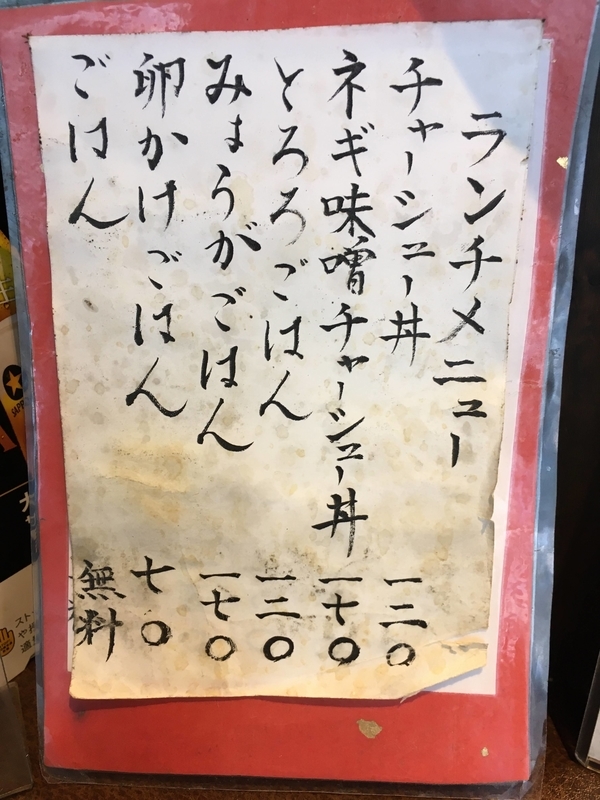 ランチメニュー
チャーシュー丼 一三〇
ネギ味噌チャーシュー丼 一七〇
とろろごはん 一三〇
みょうがごはん 一七〇
卵かけごはん 七〇
ごはん 無料